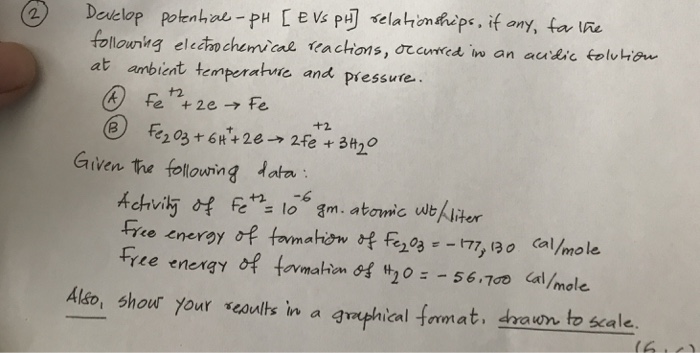 ② Develop potential-pH [E Vs pH] relationships, if any, for the
following electrochemical reactions, occurred in an acidic solution
at ambient temperature and pressure.
Ⓐ Fe⁺² + 2e → Fe
Ⓑ Fe₂O₃ + 6H⁺ + 2e → 2Fe⁺² + 3H₂O
Given the following data:
Activity of Fe⁺² = 10⁻⁶ gm. atomic wt/liter
Free energy of formation of Fe₂O₃ = -177,130 Cal/mole
Free energy of formation of H₂O = -56,700 Cal/mole
Also, show your results in a graphical format, drawn to scale.